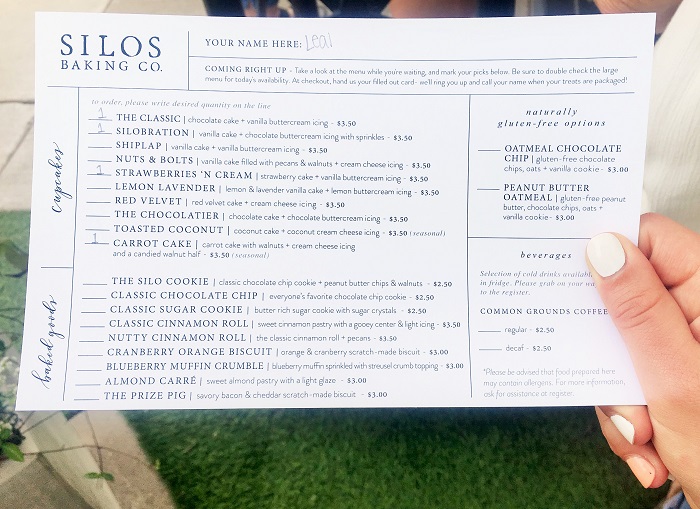 SILOS
BAKING CO.
YOUR NAME HERE: Leal
COMING RIGHT UP - Take a look at the menu while you're waiting, and mark your picks below. Be sure to double check the large
menu for today's availability. At checkout, hand us your filled out card- we'll ring you up and call your name when your treats are packaged!
cupcakes
to order, please write desired quantity on the line
1 THE CLASSIC | chocolate cake + vanilla buttercream icing - $3.50
1 SILOBRATION | vanilla cake + chocolate buttercream icing with sprinkles - $3.50
SHIPLAP | vanilla cake + vanilla buttercream icing - $3.50
NUTS & BOLTS | vanilla cake filled with pecans & walnuts + cream cheese icing - $3.50
1 STRAWBERRIES 'N CREAM | strawberry cake + vanilla buttercream icing - $3.50
LEMON LAVENDER | lemon & lavender vanilla cake + lemon buttercream icing - $3.50
RED VELVET | red velvet cake + cream cheese icing - $3.50
THE CHOCOLATIER | chocolate cake + chocolate buttercream icing - $3.50
TOASTED COCONUT | coconut cake + coconut cream cheese icing - $3.50 (seasonal)
1 CARROT CAKE | carrot cake with walnuts + cream cheese icing
and a candied walnut half - $3.50 (seasonal)
baked goods
THE SILO COOKIE | classic chocolate chip cookie + peanut butter chips & walnuts - $2.50
CLASSIC CHOCOLATE CHIP | everyone's favorite chocolate chip cookie - $2.50
CLASSIC SUGAR COOKIE | butter rich sugar cookie with sugar crystals - $2.50
CLASSIC CINNAMON ROLL | sweet cinnamon pastry with a gooey center & light icing - $3.50
NUTTY CINNAMON ROLL | the classic cinnamon roll + pecans - $3.50
CRANBERRY ORANGE BISCUIT | orange & cranberry scratch-made biscuit - $3.00
BLUEBERRY MUFFIN CRUMBLE | blueberry muffin sprinkled with streusel crumb topping - $3.00
ALMOND CARRÉ | sweet almond pastry with a light glaze - $3.00
THE PRIZE PIG | savory bacon & cheddar scratch-made biscuit - $3.00
naturally
gluten-free options
OATMEAL CHOCOLATE
CHIP | gluten-free chocolate
chips, oats + vanilla cookie - $3.00
PEANUT BUTTER
OATMEAL | gluten-free peanut
butter, chocolate chips, oats +
vanilla cookie - $3.00
beverages
Selection of cold drinks available
in fridge. Please grab on your way
to the register.
COMMON GROUNDS COFFEE
regular - $2.50
decaf - $2.50
*Please be advised that food prepared here
may contain allergens. For more information,
ask for assistance at register.